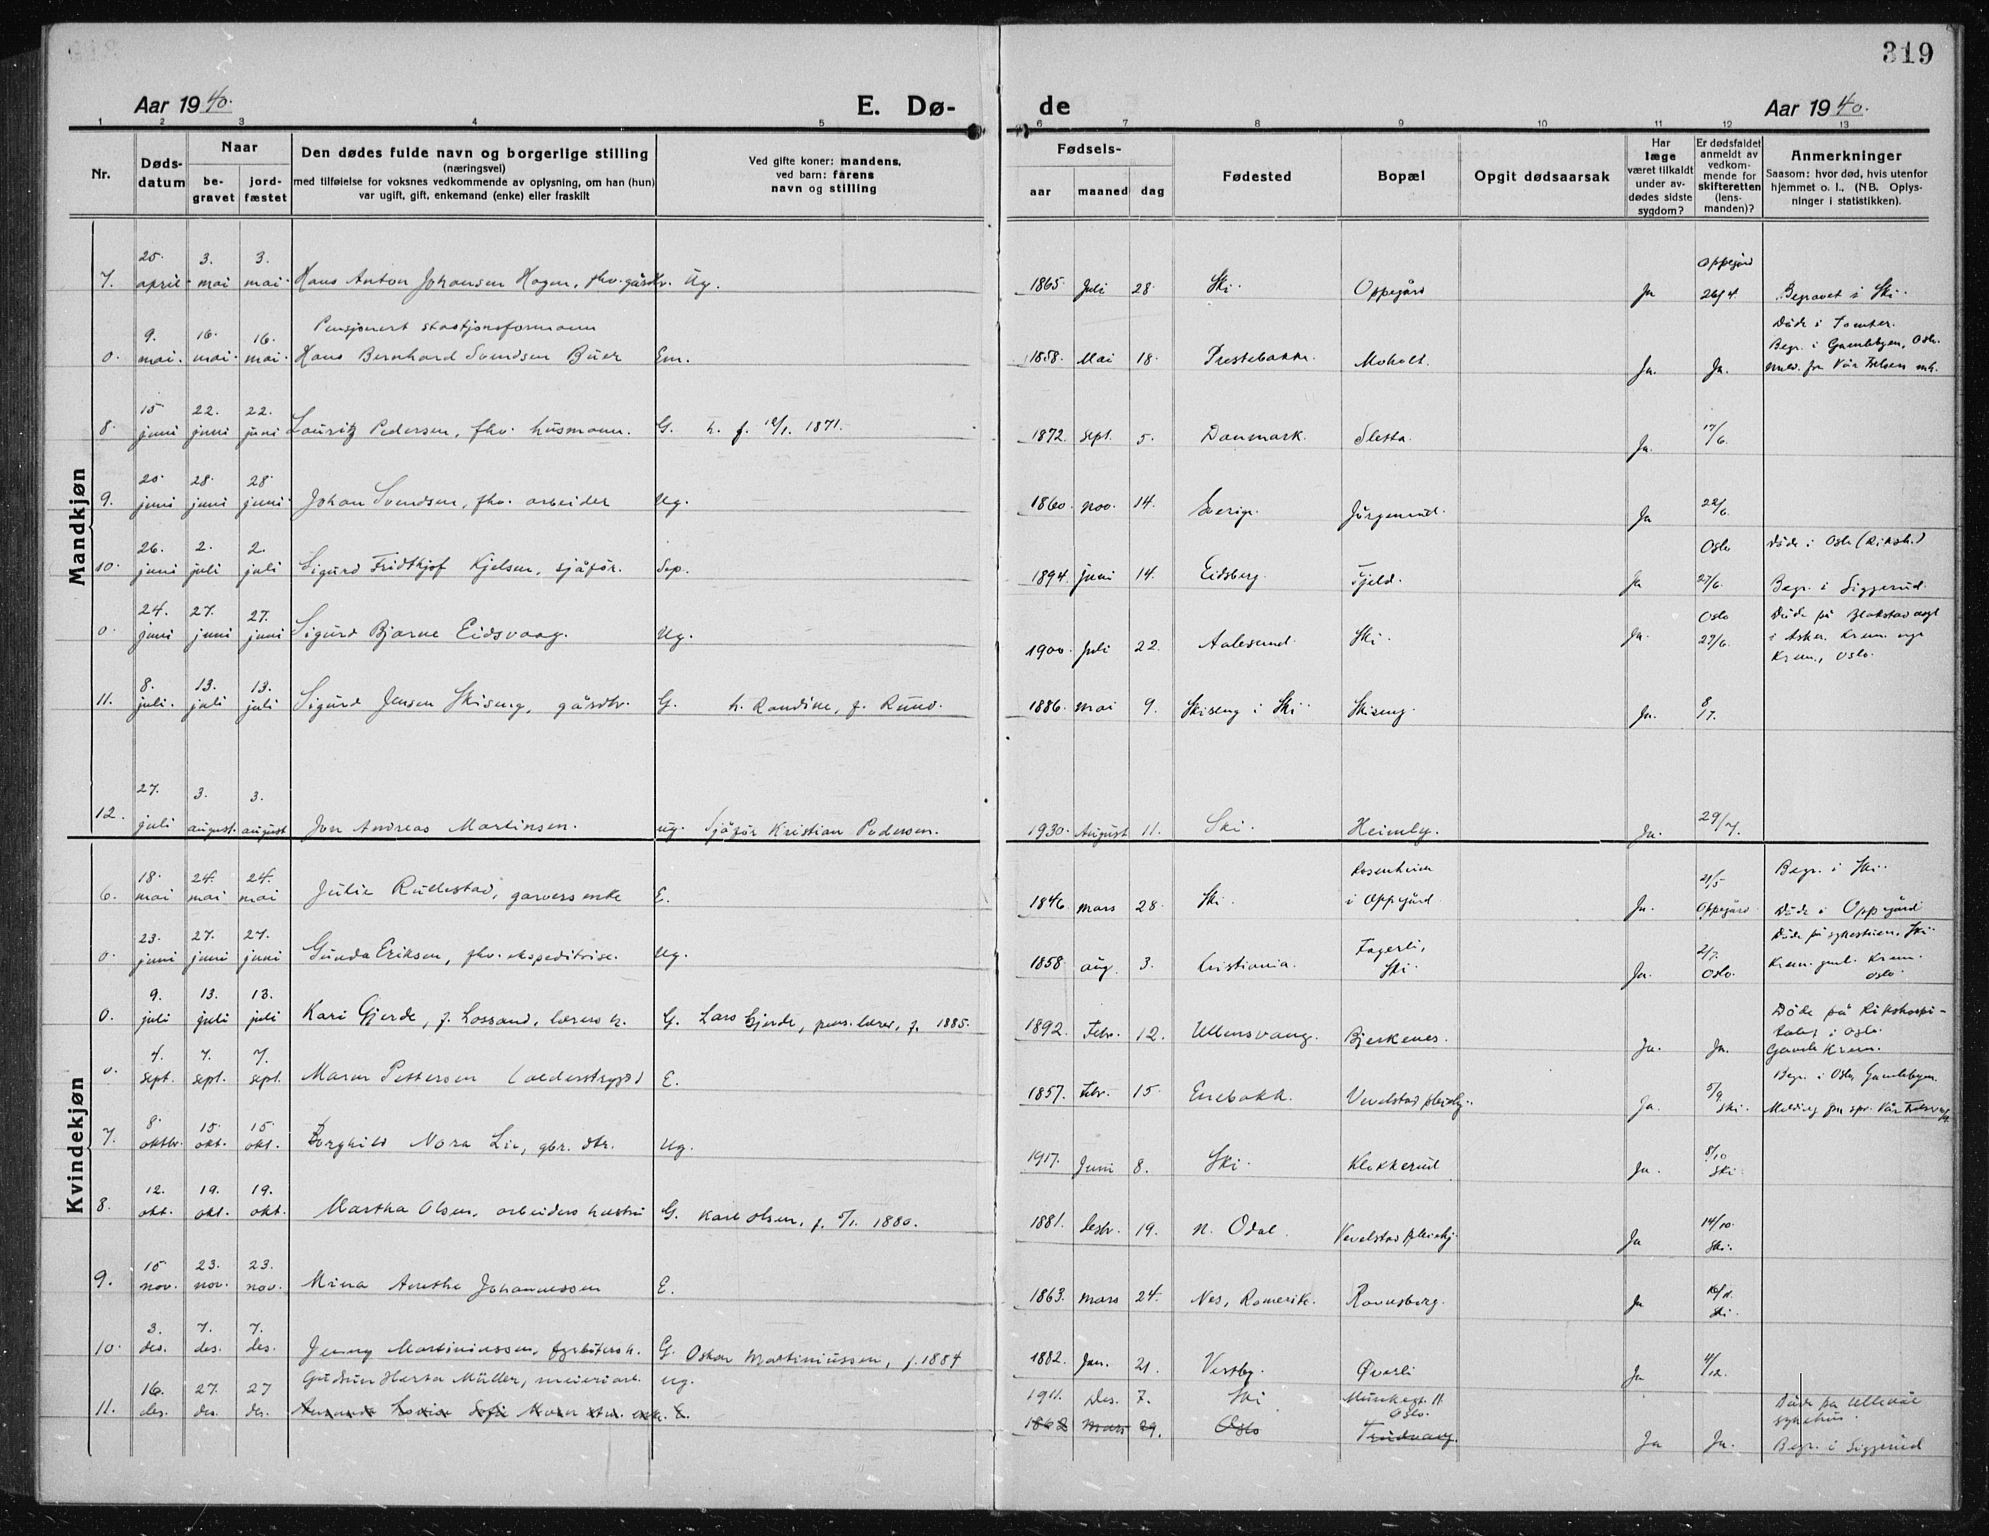 319
Aar 1940. E. Dø- de Aar 1940.
1 2 3 4 5 6 7 8 9 10 11 12 13
Nr. Døds-datum Naar be-gravet jord-fæstet
Den dødes fulde navn og borgerlige stilling
(næringsvei)
med tilføielse for voksnes vedkommende av oplysning, om han (hun)
var ugift, gift, enkemand (enke) eller fraskilt
Ved gifte koner: mandens,
ved barn: farens
navn og stilling
Fødsels-
aar maaned dag
Fødested Bopæl Opgit dødsaarsak
Har læge været tilkaldt under av-dødes sidste sygdom?
Er dødsfaldet anmeldt av vedkom-mende for skifteretten (lens-manden)?
Anmerkninger
Saasom: hvor død, hvis utenfor
hjemmet o. l., (NB. Oplys-
ninger i statistikken).
Mandkjøn
7. 25. april 3. mai 3. mai Hans Anton Johansen Hagen, fhv. gårdbr. Ug. 1865 Juli 28 Ski Oppegård Ja Oppegård 26/4 Begravet i Ski.
0. 9. mai. 16. mai. 16. mai. Pensjonert stasjonsformann
Hans Bernhard Svendsen Buer Em. 1858. Mai 18. Prestebakke. Moholt. Ja. Ja. Døde i Tomter.
Begr. i Gamlebyen, Oslo.
meld. fra Vår Frelsers mh.
8. 15 juni 22. juni 22. juni Lauritz Pedersen, fhv. husmann. G. h. f. 12/1. 1871. 1872. sept. 5. Danmark. Sletta. Ja. 17/6.
9. 25 juni 28. juni 28. juni Johan Svendsen, fhv. arbeider Ug. 1860. nov. 14. Sverige. Jørgenrud. Ja 22/6.
10. 26. juni 2. juli 2. juli Sigurd Fridtkjof Kjelsen, sjåfør. Sep. 1894. juni 14. Eidsberg. Fjeld. Ja Oslo 27/6. Døde i Oslo (Riksh.)
Begr. i Siggerud.
0. 24. juni 27. juni 27. juni Sigurd Bjarne Eidsvaag. Ug. 1900. Juli 22. Aalesund. Ski. Ja. Oslo 27/6. Døde på Blakstad asyl
i Asker. Krem. nye
Krem., Oslo.
11. 8. juli. 13. juli 13. juli Sigurd Jensen Skiseng, gårdbr. G. h. Randine, f. Ruud. 1886. mai 9. Skiseng i Ski. Skiseng. Ja. 8/7.
12. 27. juli 3. august. 3. august Jon Andreas Martinsen. ug. Sjåfør Kristian Pedersen. 1930. August 11. Ski. Heimly. Ja. 29/7.
Kvindekjøn
6. 18. mai 24. mai 24. mai Julie Rullestad, garvers enke E. 1846. mars 28. Ski. Rosenheim i Oppegård Ja. 21/5 Oppegård. Begr. i Ski.
Døde i Oppegård
0. 23. juni 27. juni 27. juni Gunda Eriksen, fhv. ekspeditrise. Ug. 1858 aug. 3. Cristiania. Fagerli, Ski. Ja. 2/7. Oslo. Døde på sykestuen, Ski.
Krem. gml. Krem.
Oslo.
0. 9. juli 13. juli 13. juli Kari Gjerde, f. Lossand, lærers h. G. Lars Gjerde, pens. lærer, f. 1885. 1892. Febr. 12. Ullensvang. Bjerkenes. Ja. Ja. Døde på Rikshospi-
talet i Oslo.
Gamle Krem.
0. 4. sept. 7. sept. 7. sept. Maren Pettersen (alderstrygd) E. 1857. Febr. 15. Enebakk. Vevelstad pleiehj. Ja. 5/9 Ski. Begr. i Oslo, Gamlebyen.
Melding fra spr. Vår Frelsers
7. 8. oktbr. 15. okt. 15 okt. Borghild Nora Lie, gbr. dtr. Ug. 1917. Juni 8. Ski. Klekkerud Ja. 8/10 Ski.
8. 12. okt. 19. okt. 19. okt. Martha Olsen, arbeiders hustru G. Karl Olsen, f. 5/1. 1880. 1881. Desbr. 19. N. Odal. Vevelstad pleiehj. Ja 14/10. Ski.
9. 15 nov. 23. nov. 23. nov. Mina Anethe Johannessen E. 1863. mars 24. Nes, Romerik. Ravnsborg. Ja Ski.
10. 3. des. 7. des. 7. des. Jenny Martiniussen, fyrbøters h. G. Oskar Martiniussen, f. 1884 1882. Jan. 21. Vestby. Øverli Ja 4/12.
11. 16. des. 27. des. 27 des. Gudrun Herta Müller, meieriarb. ug. 1911. Des. 7. Ski Munkegt. 11 Oslo. Ja Ja. Døde på Ullevål
sykehus.
Begr. i Siggerud
1862 Mars 29. Oslo Trudvang.